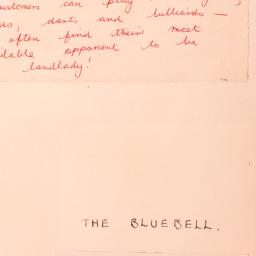 customers can play
es, darts and billiards –
often find their most
dable opponent to be
landlady!
THE BLUEBELL.